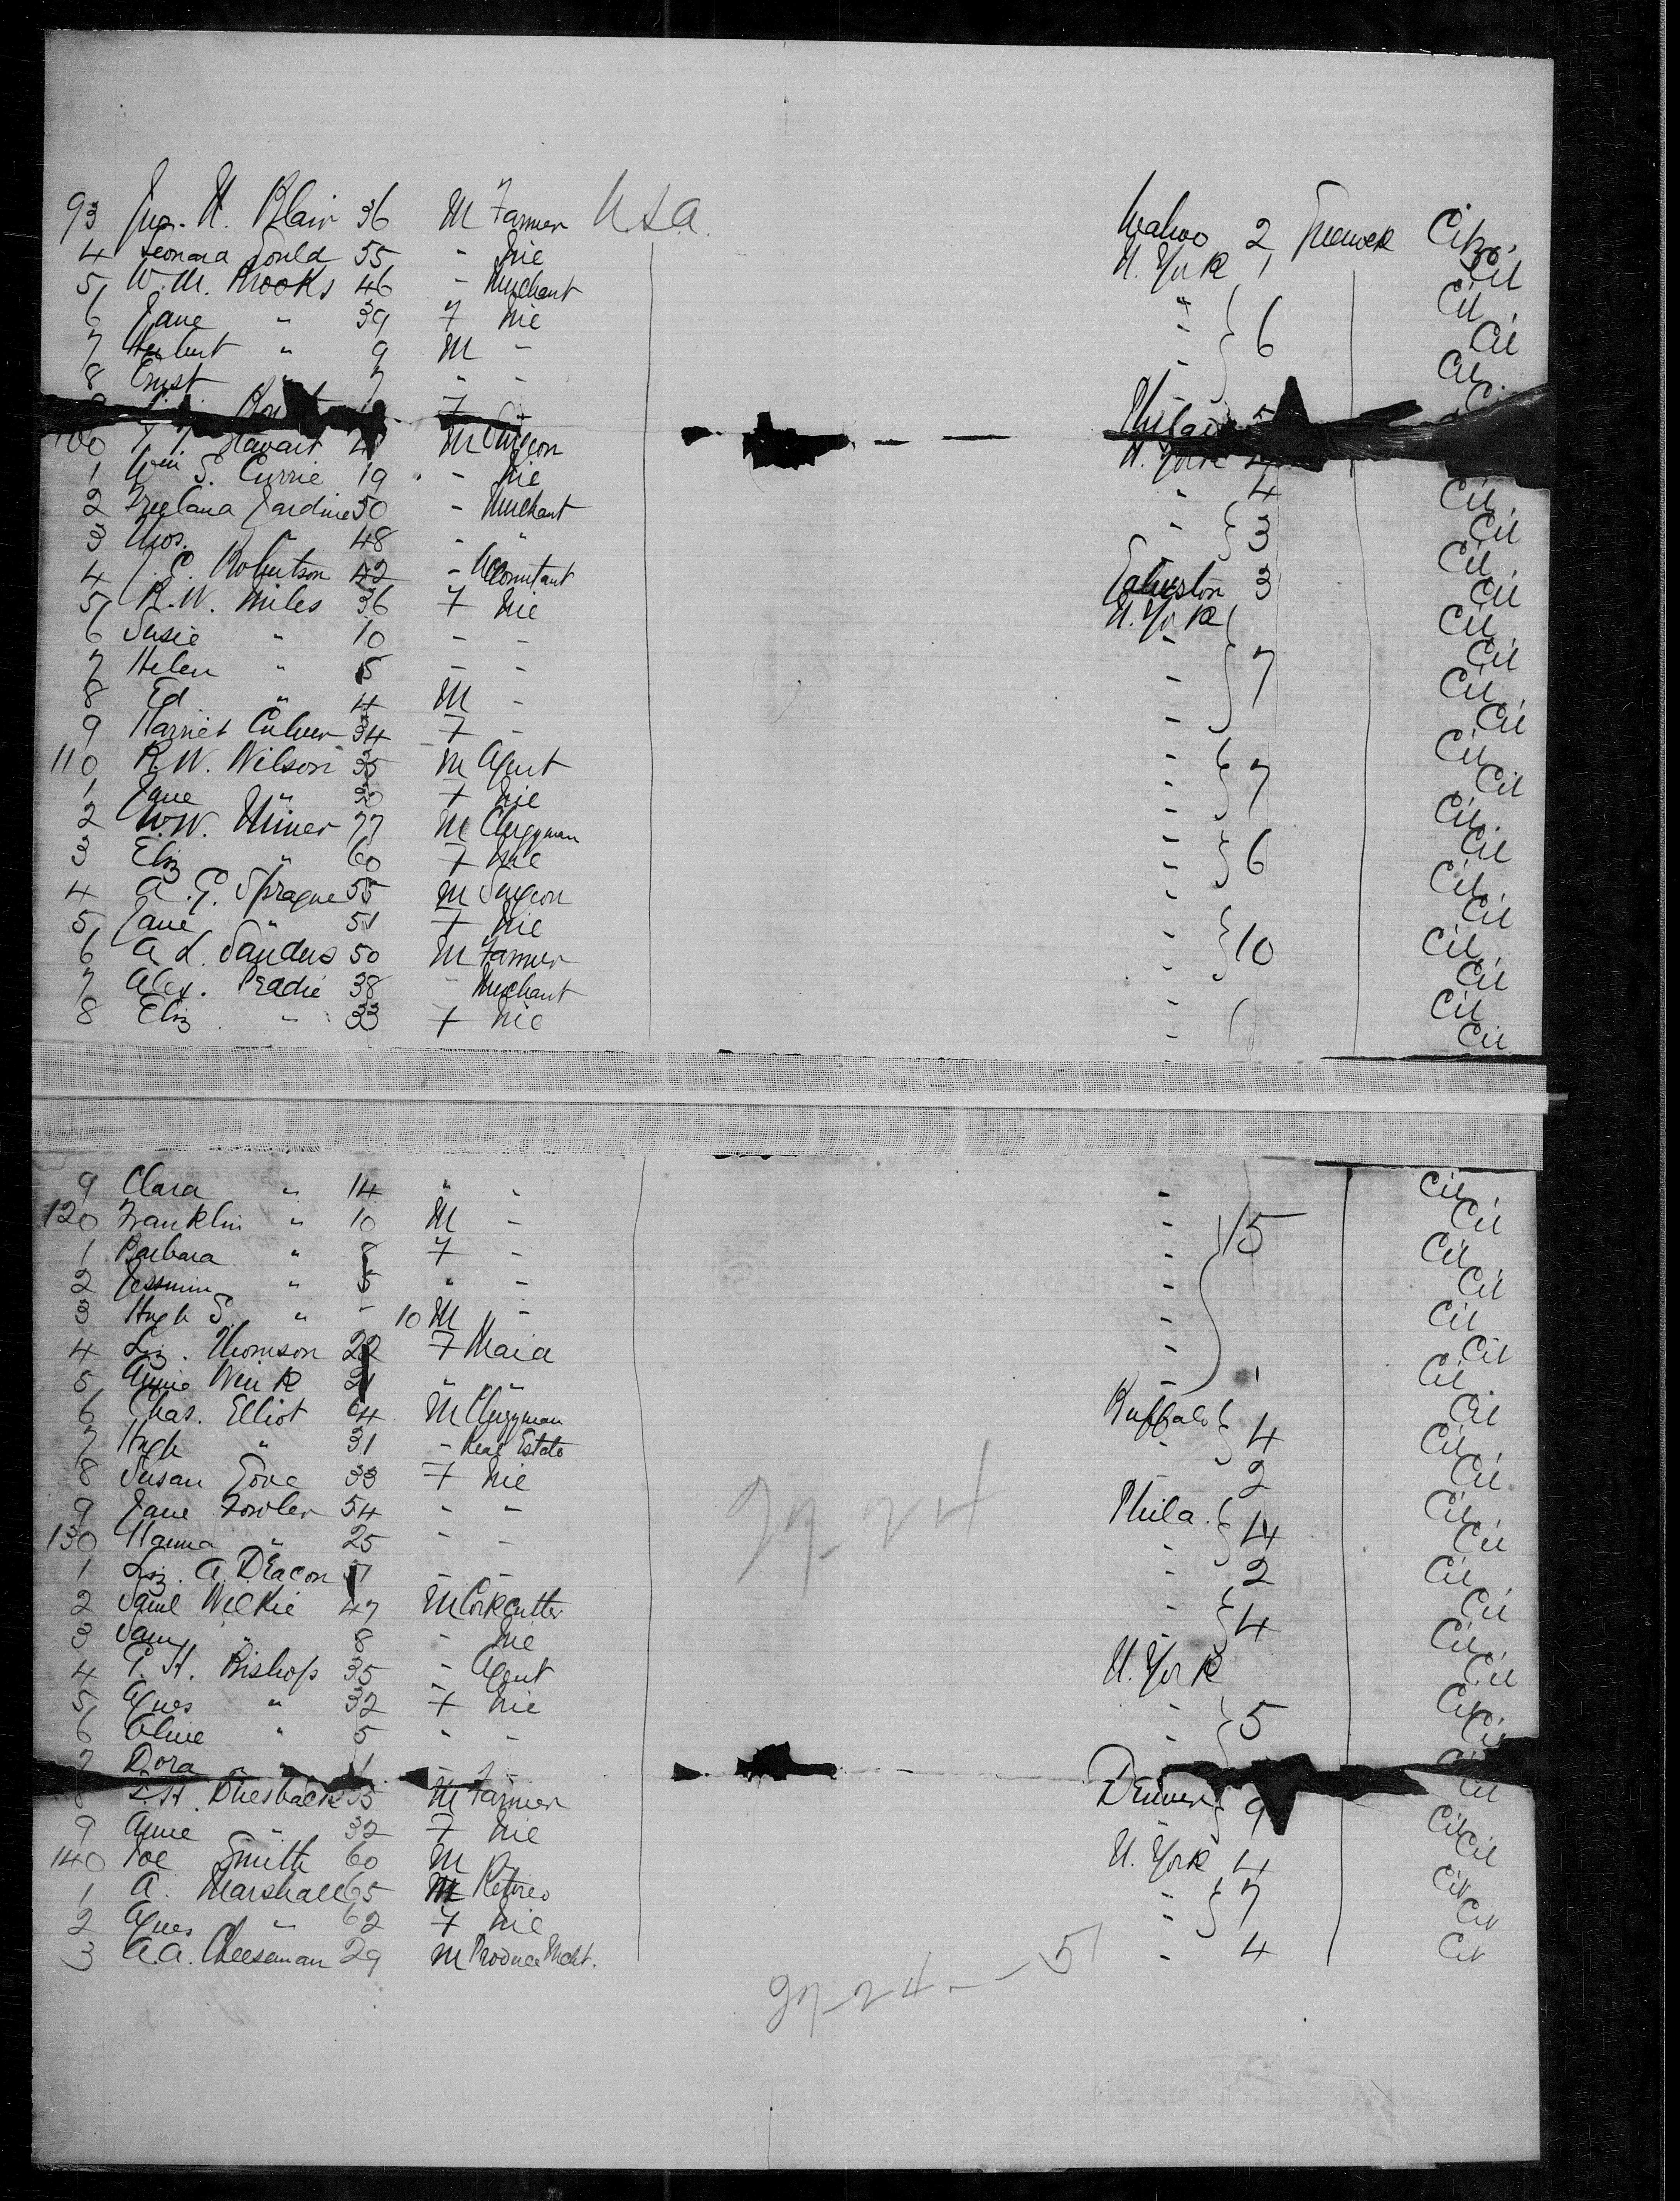 93 Jno. H. Blair 36 M Farmer U.S.A. Wahoo 2 Greenock Citzn.
4 Leonard Gould 55 - Nil N. York 1 Cit
5 W. M. Brooks 46 - Merchant " Cit
6 Jane " 39 F Nil - 6 Cit
7 Herbert " 9 M - - Cit
8 Ernst " 7 - -
F Phila
100 Stewart M Surgeon N. York
1 Wm S. Currie 19 - Nil " 4 Cit
2 Jardine 50 - Merchant - 3 Cit
3 Thos. " 48 - " Cit
4 J. C. Robertson 42 - Accountant Galveston 3 Cit
5 R. W. Miles 36 F Nil N. York Cit
6 Susie " 10 - - - Cit
7 Helen " 8 - - - 7 Cit
8 Ed " 4 M - - Cit
9 Harriet Culver 34 F - - Cit
110 R. W. Wilson 35 M Agent - 7 Cit
1 Jane " 30 F Nil - Cit
2 W. W. Miner 77 M Clergyman - 6 Cit
3 Eliz " 60 F Nil - Cit
4 A. G. Sprague 55 M Surgeon - 10 Cit
5 Jane " 51 F Nil - Cit
6 A. L. Sanders 50 M Farmer - Cit
7 Alex. Peadie 38 - Merchant - Cit
8 Eliz " 33 F Nil - Cit
9 Clara " 14 " - - Cit
120 Franklin " 10 M - - 15 Cit
1 Barbara " 8 F - - Cit
2 Jessmin " 5 " - - Cit
3 Hugh S. " - 10 M - - Cit
4 Liz. Thomson 22 F Maid - Cit
5 Annie Wink 21 " " - Cit
6 Chas. Elliot 64 M Clergyman Buffalo 4 Cit
7 Hugh " 31 - Real Estate " Cit
8 Susan Gove 33 F Nil 2 Cit
9 Jane Fowler 54 - - Phila. 4 Cit
130 Hanna " 25 - - - Cit
1 Liz. A. Deacon 51 - - - 2 Cit
2 Saml Wilkie 47 M Corkcutter - 4 Cit
3 Sam " 8 - Nil - Cit
4 G. H. Bishop 35 - Agent N. York Cit
5 Agnes " 32 F Nil - 5 Cit
6 Olive " 5 - - Cit
7 Dora " 1 - -
8 Driesback 35 M Farmer Denver 9 Cit
9 Anne " 32 F Nil Cit
140 Joe Smith 60 M - N. York 4 Cit
1 A. Marshall 65 M Retired - 7 Cit
2 Agnes " 62 F Nil - Cit
3 A. A. Cheeseman 29 M Produce Mcht. - 4 Cit
97-24
97-24--51